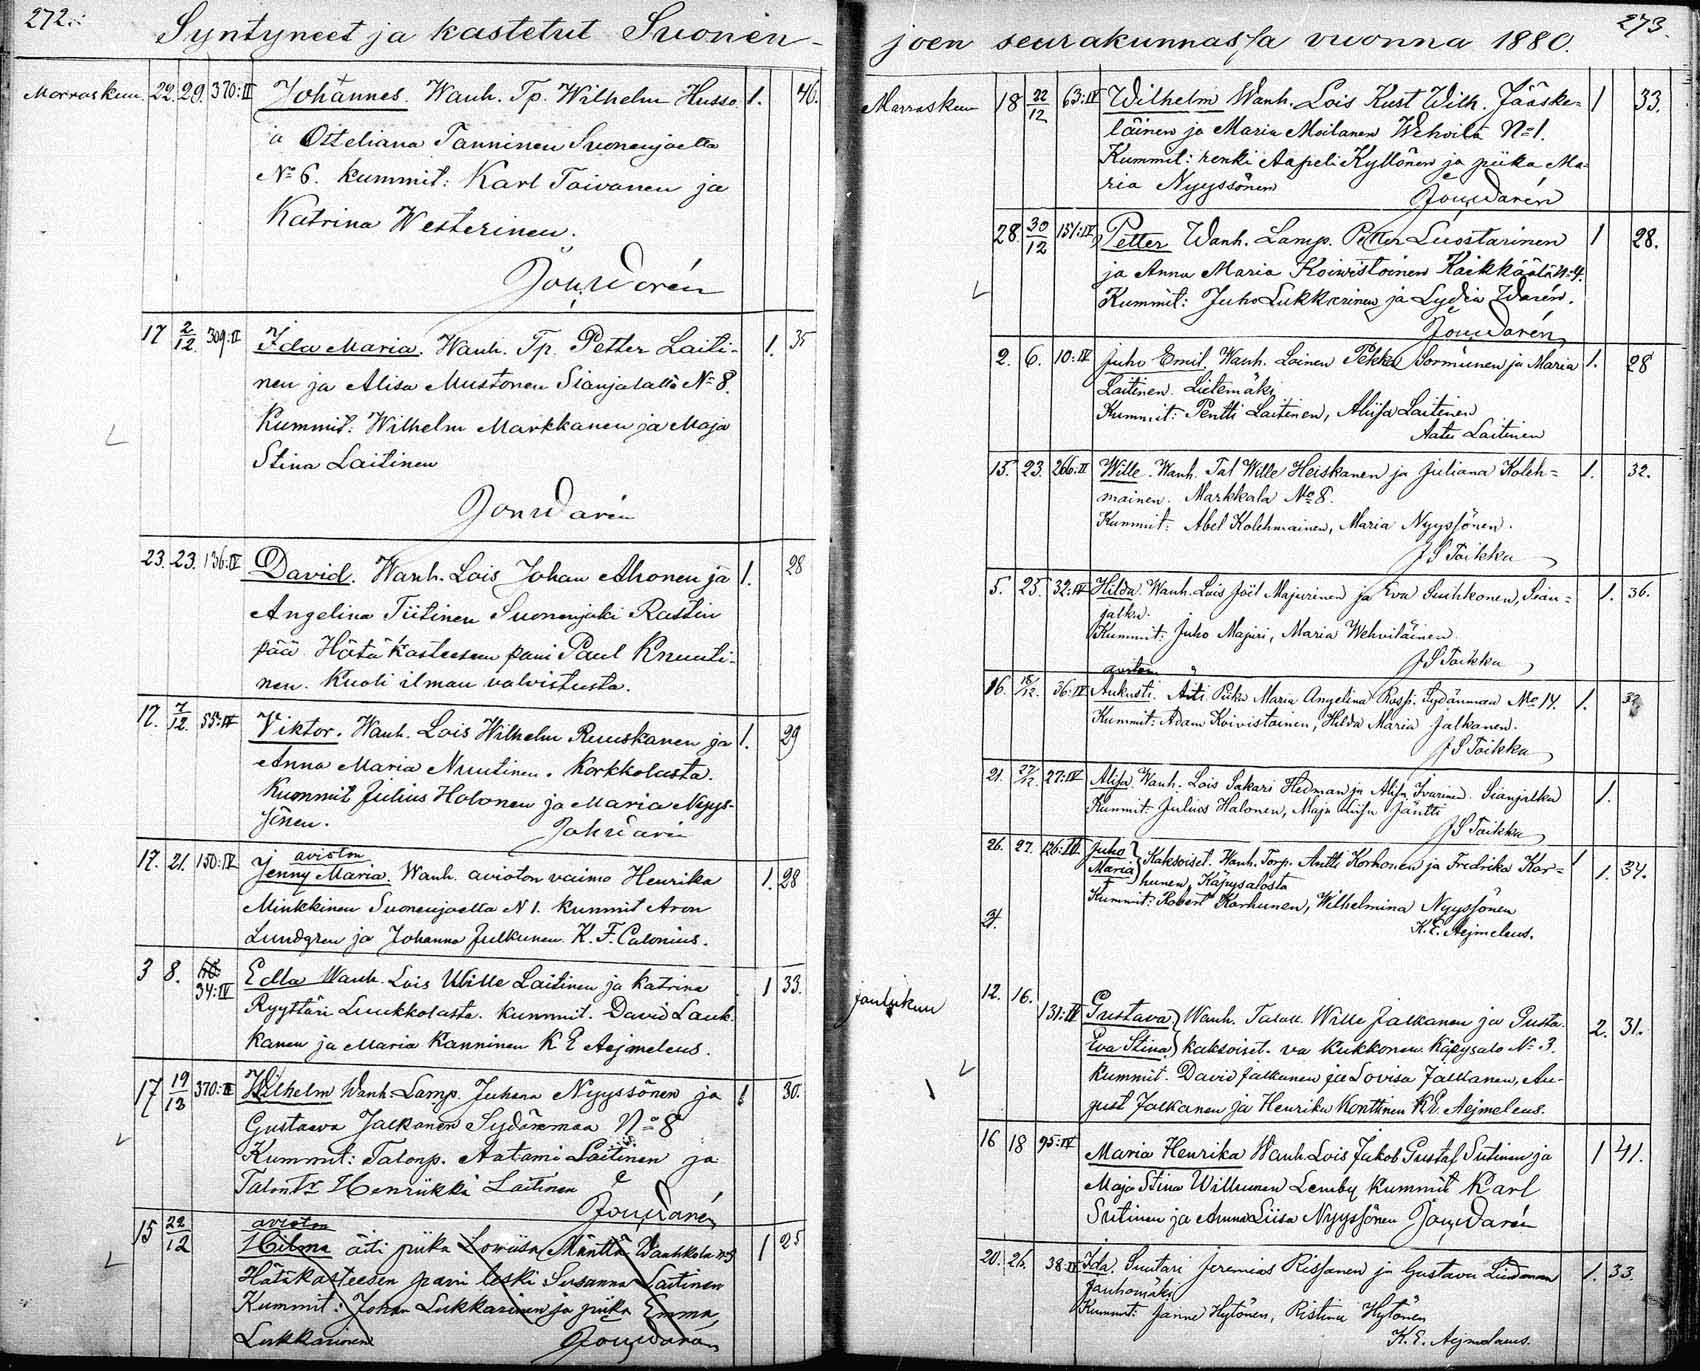 272.
Syntyneet ja kastetut Suonen-
Marraskuu. 22. 29. 370:II Johannes. Wanh. Tp. Wilhelm Husso 1. 46.
a Otteliana Tanninen Suonenjoelta
No 6. Kummit: Karl Toivanen ja
Katrina Westerinen.
Joh. Warén
17 2/12. 309:II Ida Maria. Wanh. Tp. Petter Laiti- 1. 35
nen ja Alisa Mustonen Sianjalalta No 8.
Kummit: Wilhelm Markkanen ja Maja
Stina Laitinen
Joh Warén
23. 23. 136:IV David. Wanh. Lois Johan Ahonen ja 1. 28
Angelina Tiitinen Suonenjoki Rautin
pää. Hätä kasteesen pani Paul Knuuti-
nen. Kuoli ilman valvistusta.
17. 7/12. 55:IV Viktor. Wanh. Lois Wilhelm Ruuskanen ja 1. 29
Anna Maria Nuutinen. Korkkolasta.
Kummit Julius Holonen ja Maria Nyys-
sönen. Joh Warén
avioton
17. 21. 150:IV Jenny Maria. Wanh. avioton vaimo Henrika 1. 28
Minkkinen Suonenjoelta N 1. Kummit Aron
Lundgren ja Johanna Julkunen. K. F. Calonius.
3 8. 34:IV Edla Wanh. Lois Wille Laitinen ja Katrina 1 33.
Ryyttäri Luukkolasta. Kummit. David Lauk-
kanen ja Maria Kanninen K E Aejmeleus.
17 19/12 370:II Wilhelm Wanh. Lamp. Juhana Nyyssönen ja 1 30.
Gustaava Jalkanen Sydänmaa No 8
Kummit: Talonp. Aatami Laitinen ja
Talontr Henrikki Laitinen
Joh. Warén
avioton
15 22/12 Hilma äiti piika Lowiisa Mänttä Wanhkola No 9 1 25
Hätäkasteesen pani leski Susanna Laitinen
Kummit: Johan Lukkarinen ja piika Emma
Lukkarinen Joh. Warén
273.
joen seurakunnassa vuonna 1880.
Marraskuu 18 22/12 63:IV Wilhelm Wanh. Lois Kust Wilh. Jääske- 1 33.
läinen ja Maria Moilanen Wehvilä No 1.
Kummit: renki Aapeli Kyllönen ja piika Ma-
ria Nyyssönen Joh. Warén
28. 30/12 151:IV Petter Wanh. Lamp. Petter Luostarinen 1 28.
ja Anna Maria Koiwistoinen Kaikkäälä No 4.
Kummit: Juho Lukkarinen ja Lydia Warén.
Joh. Warén
2. 6. 10:IV Juho Emil, Wanh. Loinen Pekka Sormunen ja Maria 1. 28
Laitinen. Lietemäki
Kummit: Pentti Laitinen, Aliisa Laitinen
Aatu Laitinen
15. 23. 266:II Wille. Wanh. Tal Wille Heiskanen ja Juliana Koleh- 1. 32.
mainen. Markkala No 8.
Kummit: Abel Kolehmainen, Maria Nyyssönen.
J S Toikka
5. 25. 32:IV Hilda. Wanh. Lois Joel Majurinen ja Eva Suihkonen, Sian- 1. 36.
jalka.
Kummit: Juho Majuri, Maria Wehviläinen.
J S Toikka
avioton
16. 18/12. 36:IV Aukusti. Äiti Piika Maria Angelina Rosp. Sydänmaa No 14. 1. 32
Kummit: Adam Koivistoinen, Hilda Maria Jalkanen.
J S Toikka
21. 27/12 27:IV Alisa. Wanh. Lois Sakari Hedman ja Alisa Ivarinen. Sianjalka 1.
Kummit: Julius Halonen, Maja Liisa Jäntti
J S Toikka
26. 27. 126:III Juho 1
Maria Kaksoiset. Wanh. Torp. Antti Korhonen ja Fredrika Kor- 1. 34.
hunen, Käpysalosta
Kummit: Robert Karhunen, Wilhelmina Nyyssönen
K. E. Aejmeleus.
Joulukuu 12. 16. 131:IV Gustava Wanh. Talall. Wille Jalkanen ja Gusta- 2. 31.
Eva Stina kaksoiset. va Kukkonen. Käpysalo No 3.
Kummit. David Jalkanen ja Lovisa Jalkanen, Au-
gust Jalkanen ja Henrika Konttinen K E. Aejmeleus.
16 18 95:IV Maria Henrika Wanh. Lois Jakob Gustaf Sutinen ja 1 41.
Maja Stina Willmunen Lemby Kummit Karl
Sutinen ja Anna Liisa Nyyssönen Joh. Warén
20. 26. 38:II Ida. Suutari Jeremias Rissanen ja Gustava Lindman 1. 33.
Jauhomäki
Kummit: Janne Hytönen, Ristina Hytönen
K. E. Aejmelaeus.